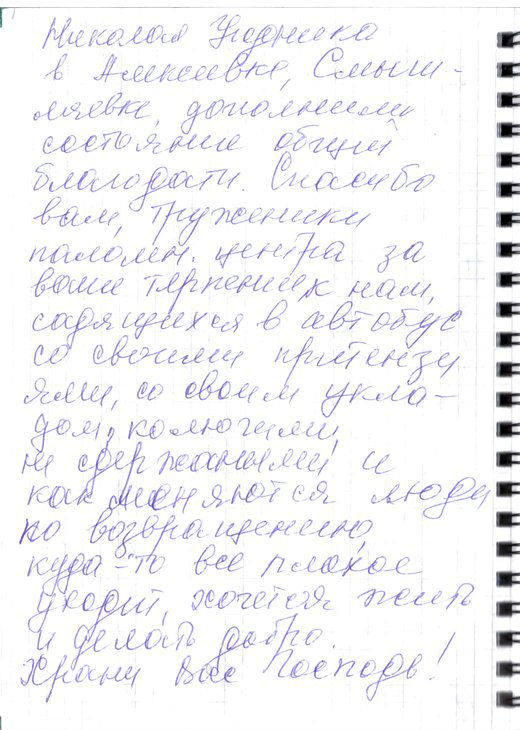 Николая Угодника
в Алексеевке, Смыш-
ляевке, дополнили
состояние общей
благодати. Спасибо
вам, труженики
паломн. центра за
ваше терпение к нам,
садящихся в автобус
со своими претензи
ями, со своим укла-
дом, колючими,
не сдержаными и
как меняются люди
по возвращению,
куда-то все плохое
уходит, хочется жить
и делать добро.
Храни Вас Господь!